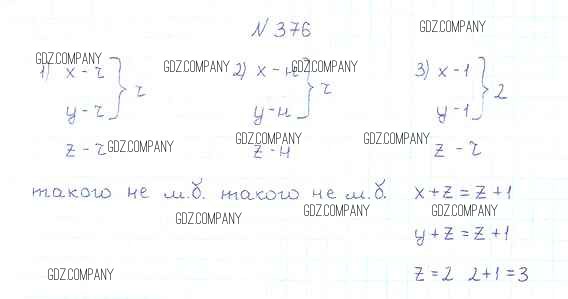 N 376
GDZ.COMPANY
GDZ.COMPANY
GDZ.COMPANY
GDZ.COMPANY
1) x - ч } ч
y - ч
z - ч
GDZ.COMPANY
2) x - н } ч
y - н
z - н
GDZ.COMPANY
3) x - 1 } 2
y - 1
z - ч
GDZ.COMPANY
такого не м.б. такого не м.б.
x + z = z + 1
GDZ.COMPANY
GDZ.COMPANY
GDZ.COMPANY
y + z = z + 1
GDZ.COMPANY
z = 2 2 + 1 = 3